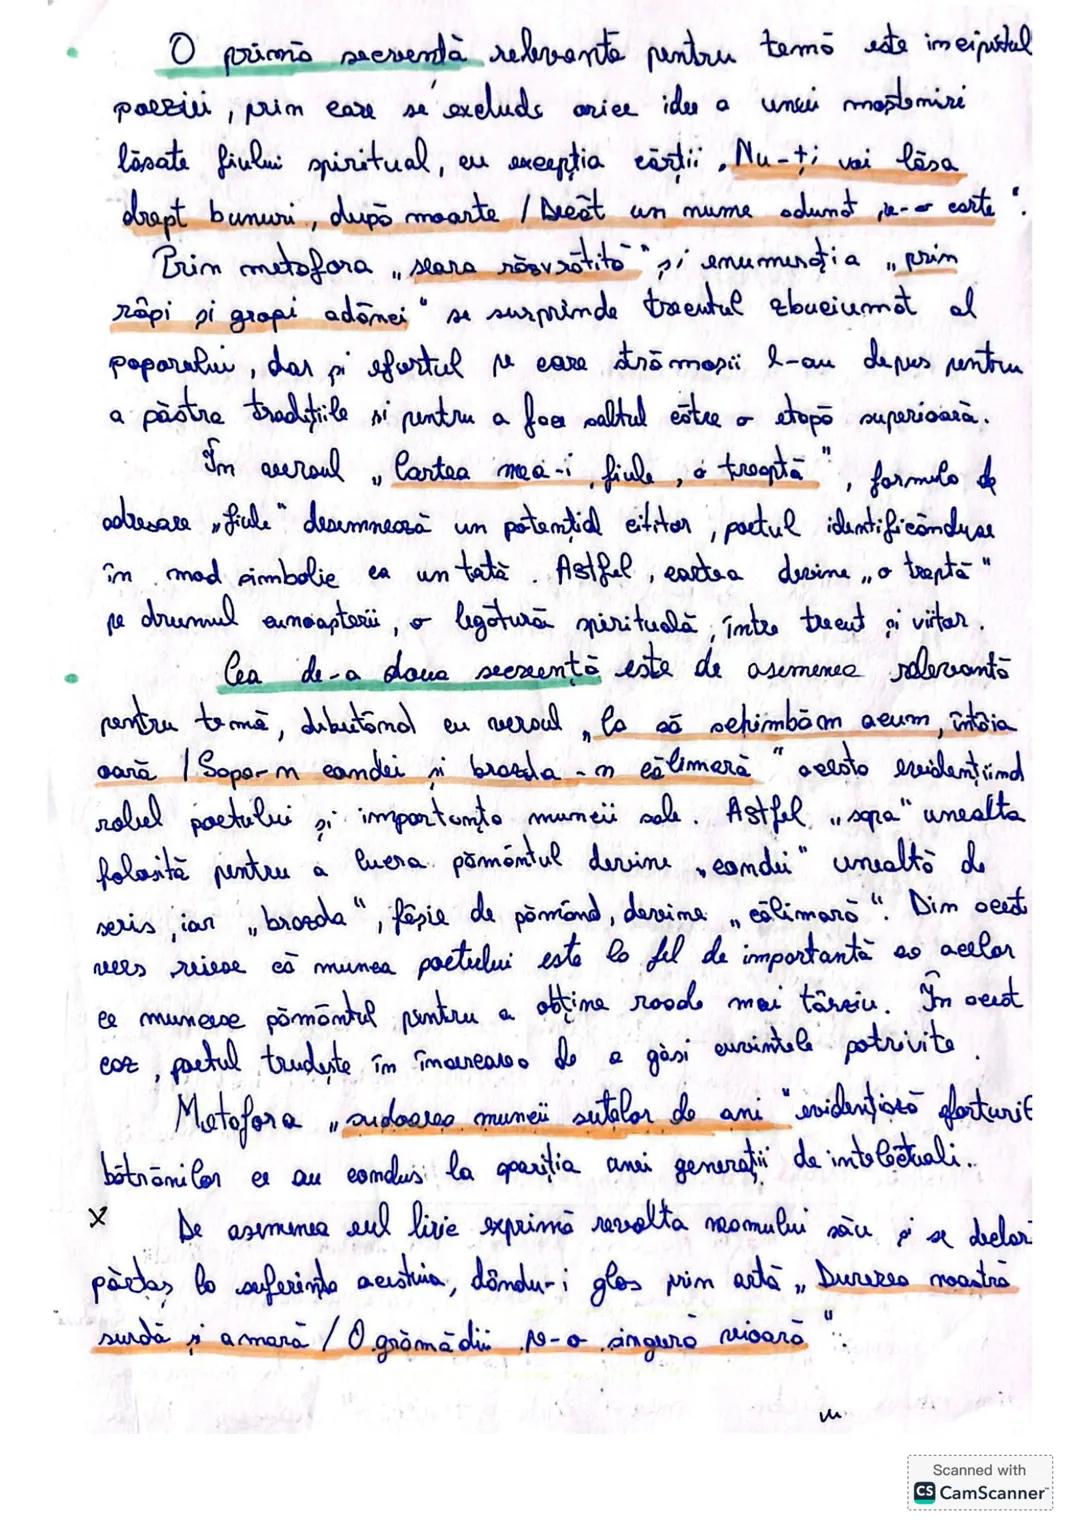 O primă secvență relevantă pentru temă este incipitul
poeziei, prim care se exclude orice idee a unei moștemiri
lăsate fiului spiritual, cu excepția cărții „Nu-ți voi lăsa
drept bunuri, după moarte / Decât un nume adunat pe-o carte".
Prin metafora „seara răzvrătită" și enumerația „prin
râpi și gropi adânci" se surprinde trecutul zbuciumat al
poporului, dar și efortul pe care strămoșii l-au depus pentru
a păstra tradițiile și pentru a face saltul către o etapă superioară.
Îm versul „Cartea mea-i, fiule, o treaptă", formula de
adresare „fiule" desemnează un potențial cititor, poetul identificânduse
în mod simbolic ca un tată. Astfel, cartea devine „o treptă"
pe drumul cunoașterii, o legătură spirituală, între trecut și viitor.
Cea de-a doua secvență este de asemenea relevantă
pentru temă, debutând cu versul „Ca să schimbăm acum, întâia
oară / Sapa-n condei și brazda-n călimară" acesta evidențiind
rolul poetului și importanța muncii sale. Astfel „sapa" unealta
folosită pentru a lucra pământul devine „condei" unealtă de
scris, iar „brazda", fâșie de pămând, devine „călimară". Dim acest
vers reiese că munca poetului este la fel de importantă ca acelor
ce muncesc pământul pentru a obține roade mai târziu. Îm acest
caz, poetul trudește îm încercarea de a găsi cuvintele potrivite.
Metafora „sudoarea muncii sutelor de ani" evidențiază eforturile
bătrânilor ce au condus la apariția unei generații de intelectuali..
x De asemenea eul liric exprimă revolta neamului său și se declar
părtaș la suferința acestuia, dându-i glas prim artă „Durerea noastră
surdă și amară / O grămădii pe-o singură vioară".
Scanned with
CS CamScanner